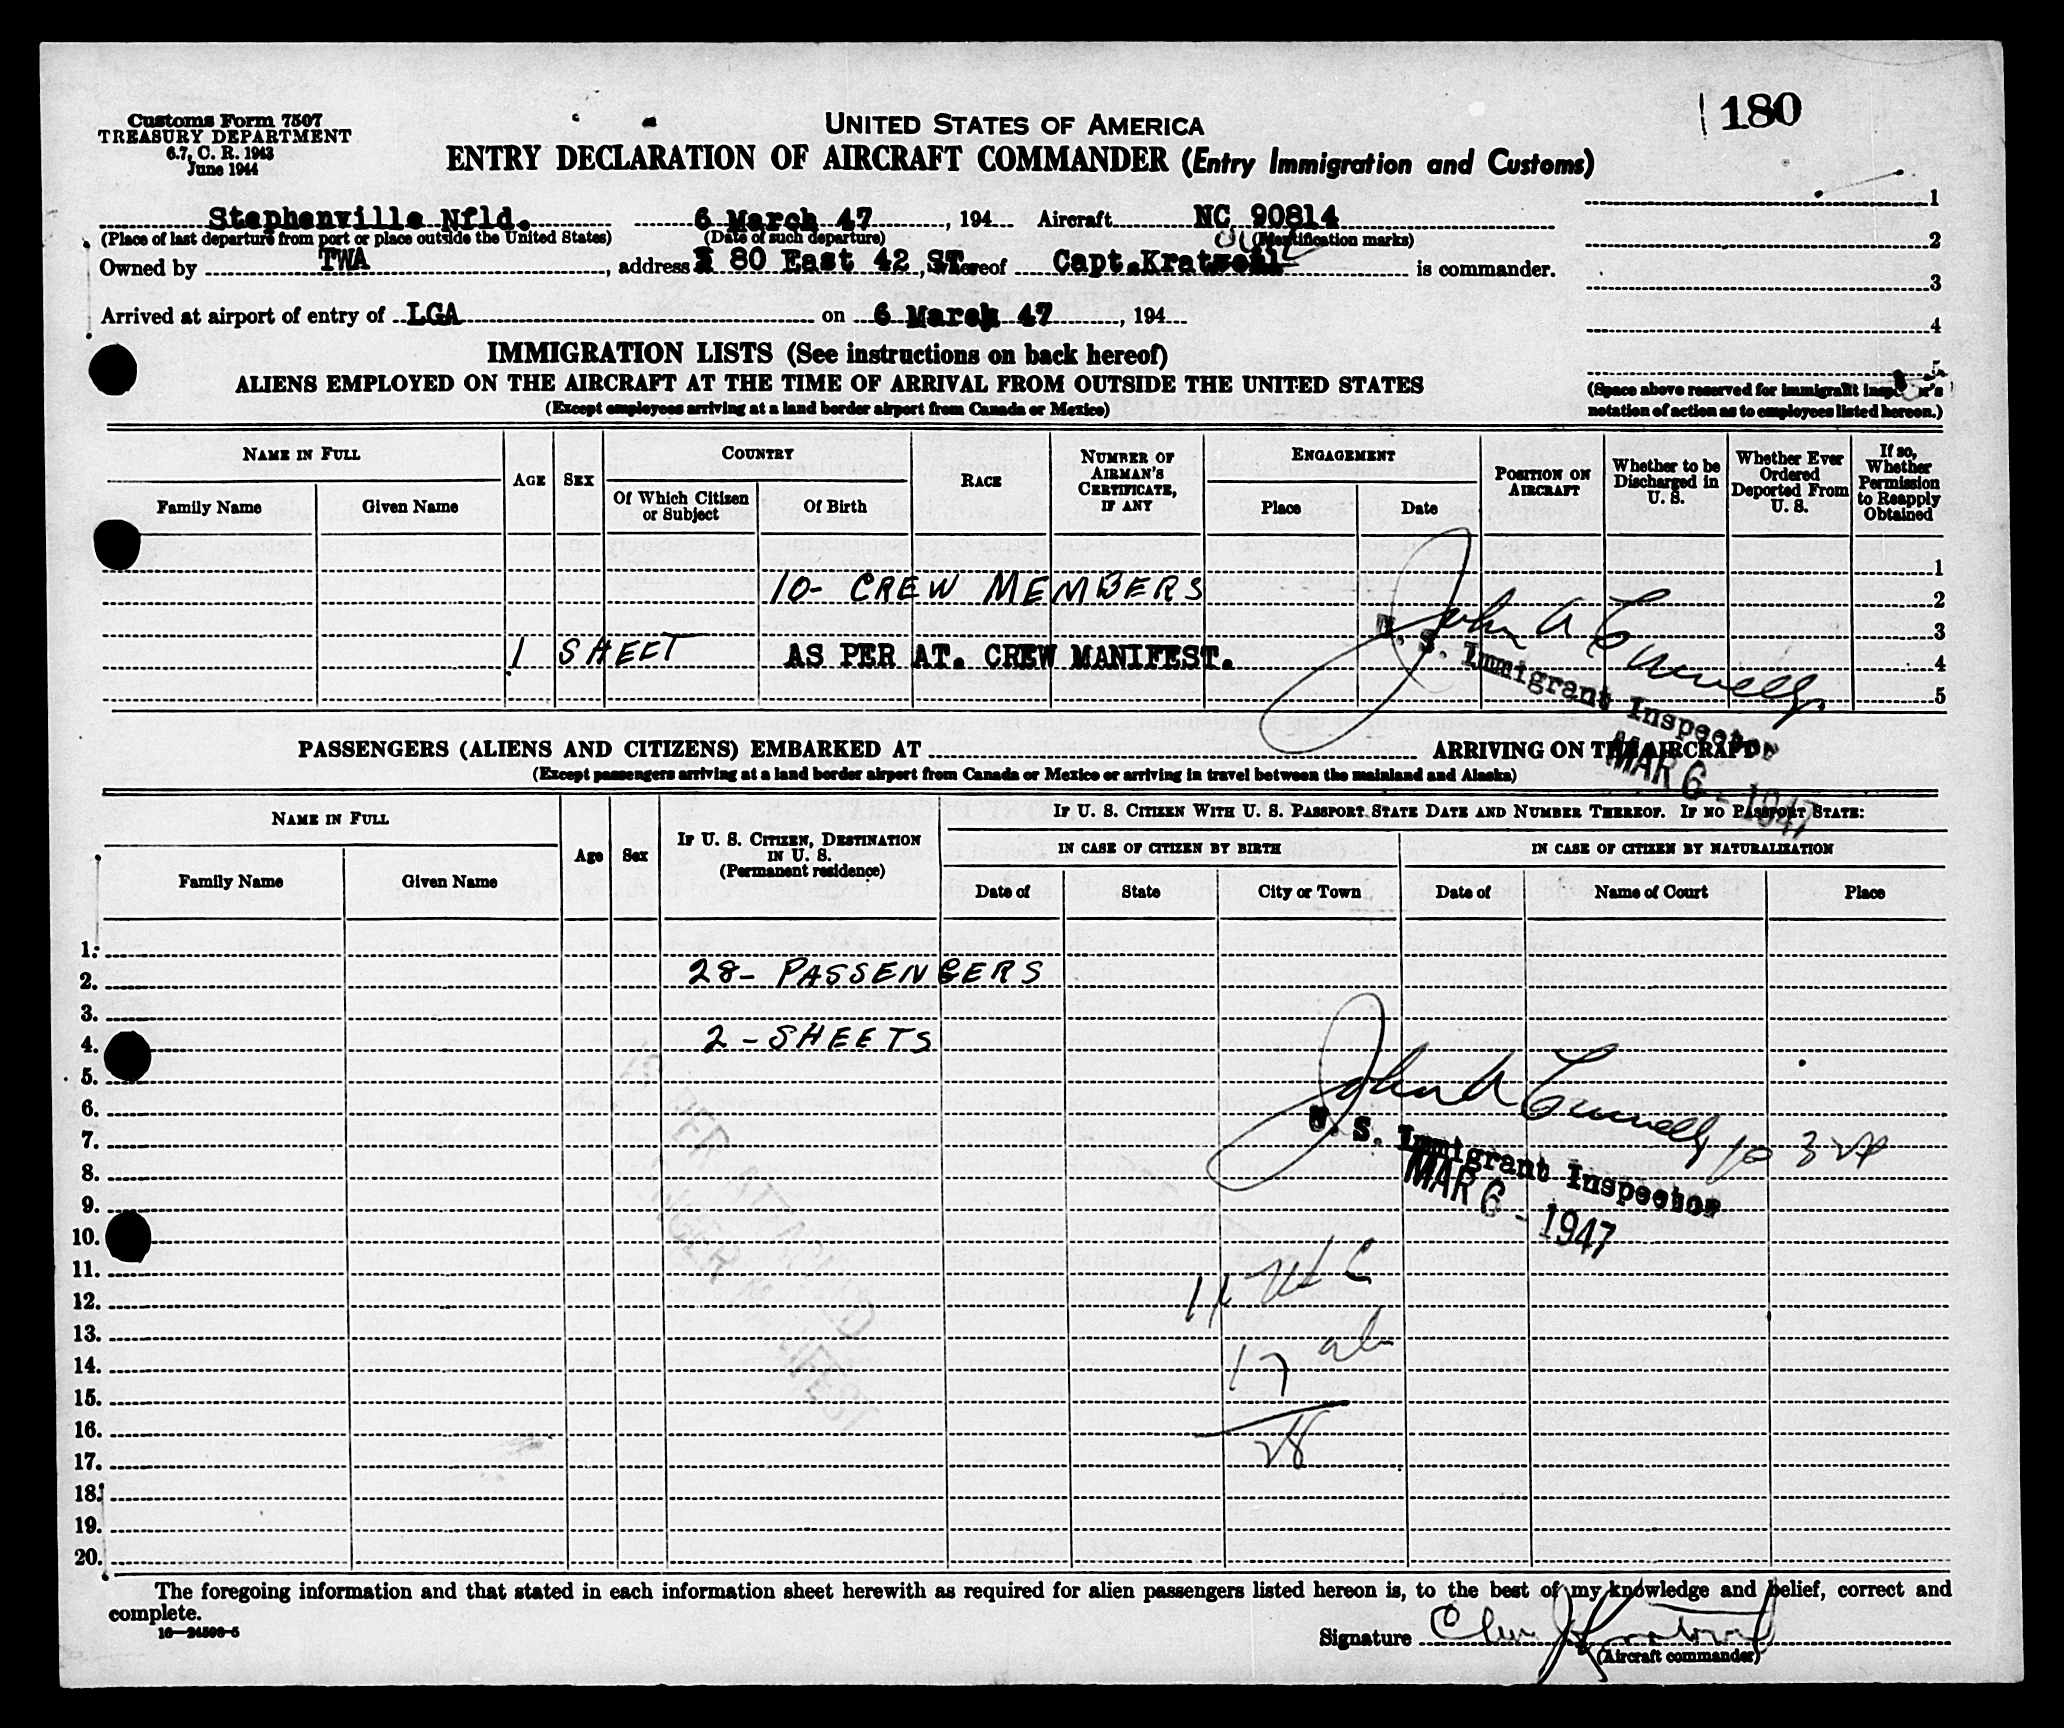 Customs Form 7507
TREASURY DEPARTMENT
6.7, C. R. 1943
June 1944
UNITED STATES OF AMERICA
180
ENTRY DECLARATION OF AIRCRAFT COMMANDER (Entry Immigration and Customs)
Stephenville Nfld. 6 March 47, 194 Aircraft NC 90814
(Place of last departure from port or place outside the United States) (Date of such departure) (Identification marks)
Owned by TWA, address 80 East 42 ST., whereof Capt. is commander.
Arrived at airport of entry of LGA on 6 March 47, 194
1
2
3
4
5
(Space above reserved for immigrant inspector's
notation of action as to employees listed hereon.)
IMMIGRATION LISTS (See instructions on back hereof)
ALIENS EMPLOYED ON THE AIRCRAFT AT THE TIME OF ARRIVAL FROM OUTSIDE THE UNITED STATES
(Except employees arriving at a land border airport from Canada or Mexico)
NAME IN FULL
Family Name
Given Name
AGE
SEX
COUNTRY
Of Which Citizen or Subject
Of Birth
RACE
NUMBER OF AIRMAN'S CERTIFICATE, IF ANY
ENGAGEMENT
Place
Date
POSITION ON AIRCRAFT
Whether to be Discharged in U. S.
Whether Ever Ordered Deported From U. S.
If so, Whether Permission to Reapply Obtained
1
10- CREW MEMBERS 2
3
1 SHEET AS PER AT. CREW MANIFEST. 4
5
John A
U. S. Immigrant Inspector
MAR 6 - 1947
PASSENGERS (ALIENS AND CITIZENS) EMBARKED AT ARRIVING ON THE AIRCRAFT
(Except passengers arriving at a land border airport from Canada or Mexico or arriving in travel between the mainland and Alaska)
NAME IN FULL
Family Name
Given Name
Age
Sex
IF U. S. CITIZEN, DESTINATION IN U. S.
(Permanent residence)
IF U. S. CITIZEN WITH U. S. PASSPORT STATE DATE AND NUMBER THEREOF. IF NO PASSPORT STATE:
IN CASE OF CITIZEN BY BIRTH
Date of
State
City or Town
IN CASE OF CITIZEN BY NATURALIZATION
Date of
Name of Court
Place
1.
2. 28- PASSENGERS
3.
4. 2- SHEETS
5.
6.
7.
8.
9.
10.
11.
12.
13.
14.
15.
16.
17.
18.
19.
20.
AS PER ATTACHED
PASSENGER MANIFEST
John A
U. S. Immigrant Inspector
MAR 6 - 1947
11
17
28
The foregoing information and that stated in each information sheet herewith as required for alien passengers listed hereon is, to the best of my knowledge and belief, correct and
complete.
16—24598-5
Signature
(Aircraft commander)